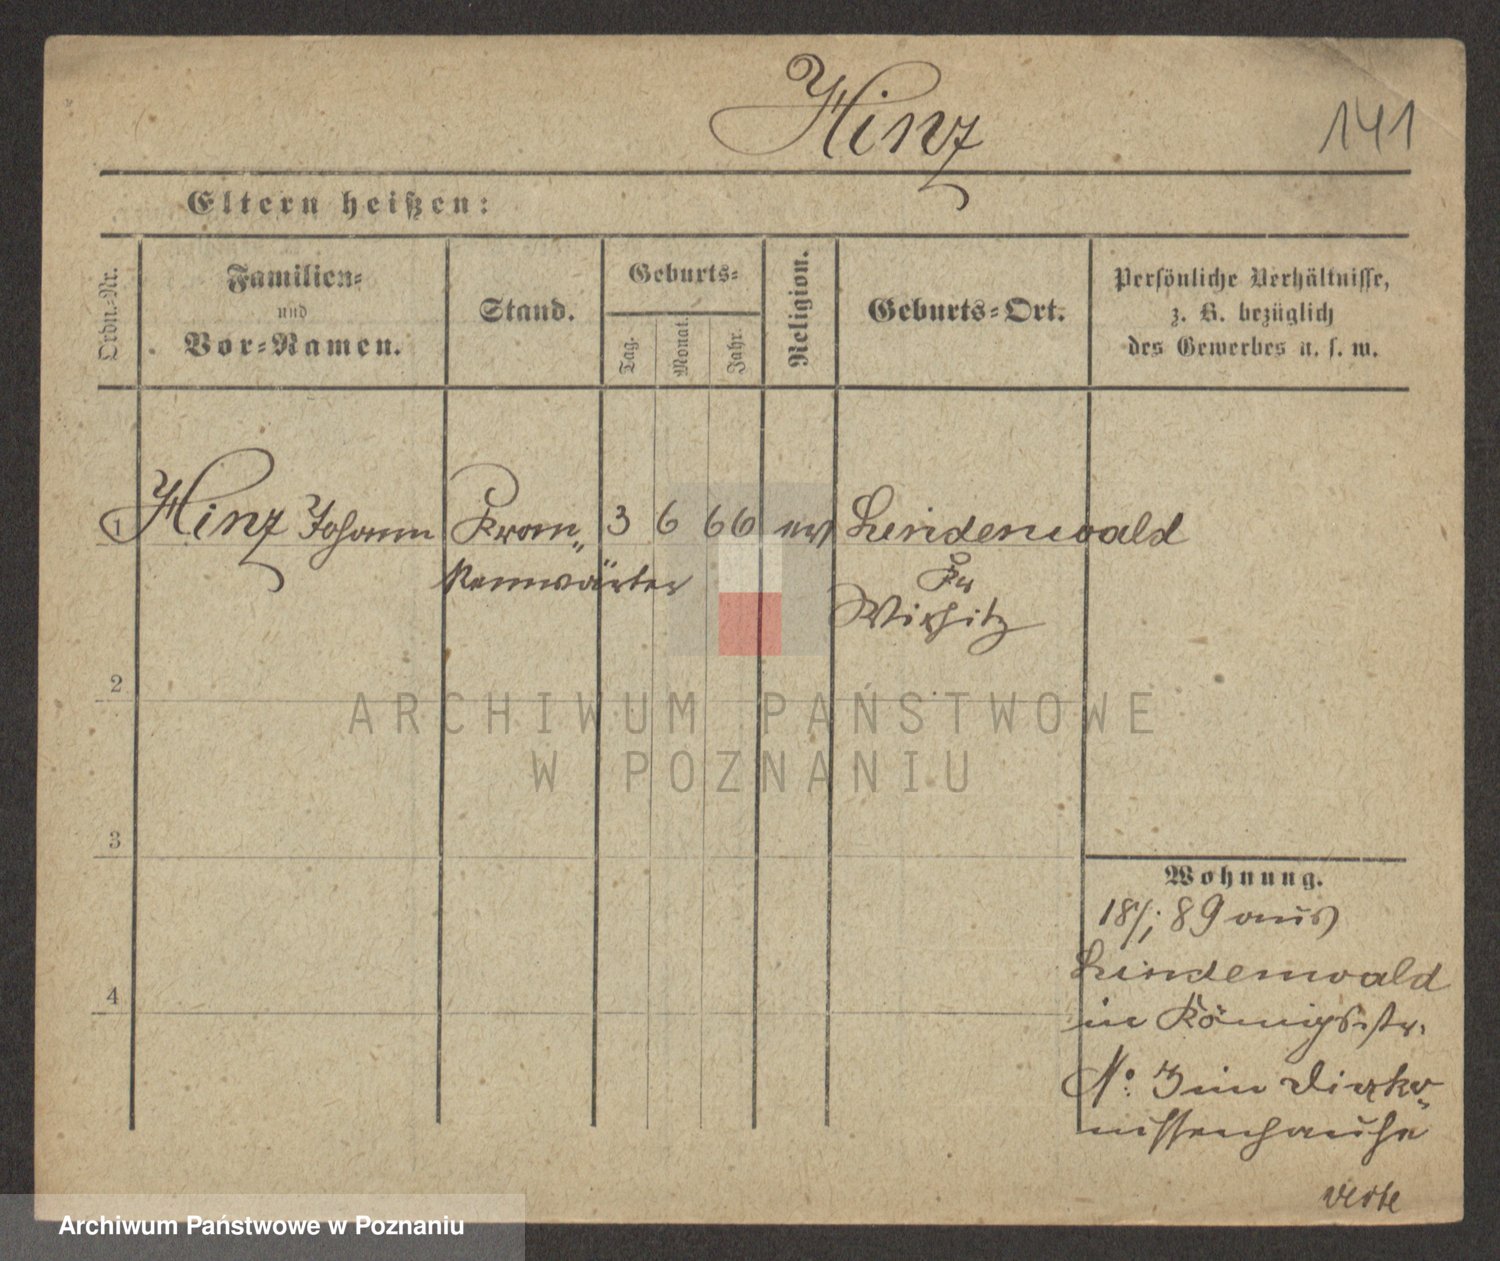 Hinz
141
Eltern heißen:
Ordn.-Nr.
Familien-
und
Vor-Namen.
Stand.
Geburts-
Tag.
Monat.
Jahr.
Religion.
Geburts-Ort.
Persönliche Verhältnisse,
z. B. bezüglich
des Gewerbes u. s. w.
1 Hinz Johann Kran„ 3 6 66 ev Lindenwald
kenwärter Kr
Wirsitz
2
ARCHIWUM PAŃSTWOWE
W POZNANIU
3
Wohnung.
18/; 89 aus
Lindenwald
4
in Königsstr.
No: 3 im Diako„
nissenhause
verte
Archiwum Państwowe w Poznaniu